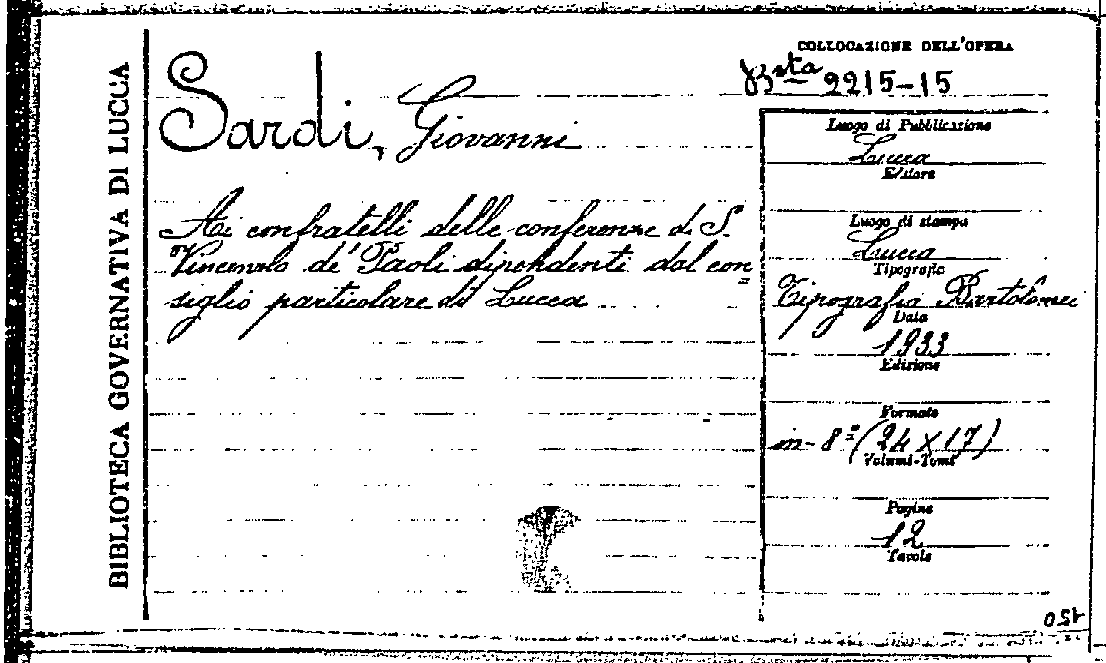 BIBLIOTECA GOVERNATIVA DI LUCCA
COLLOCAZIONE DELL'OPERA
Bsta 2215-15
Sardi, Giovanni
Ai confratelli delle conferenze di S.
Vincenzo de' Paoli dipendenti dal con=
siglio particolare di Lucca
Luogo di Pubblicazione
Lucca
Editore
Luogo di stampa
Lucca
Tipografia
Tipografia Bartolomei
Data
1933
Edizione
Formato
in-8º (24 x 17)
Volumi-Tomi
Pagine
12
Tavole